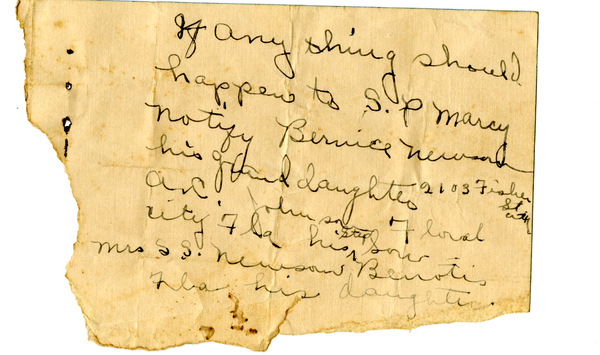 If any thing should
happen to S. P Marcy
Notify Bernice Newsom
his granddaughter 2103 Fisher
St city
Johnson Floral
city Fla his step son
Mrs S S. Newsom Benotis
Fla his daughter.